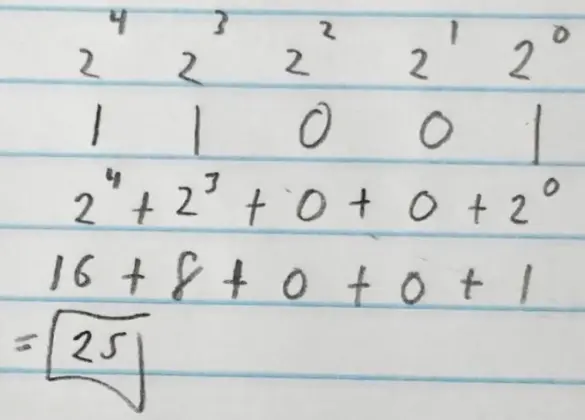 2⁴ 2³ 2² 2¹ 2⁰
1 1 0 0 1
2⁴ + 2³ + 0 + 0 + 2⁰
16 + 8 + 0 + 0 + 1
= 25